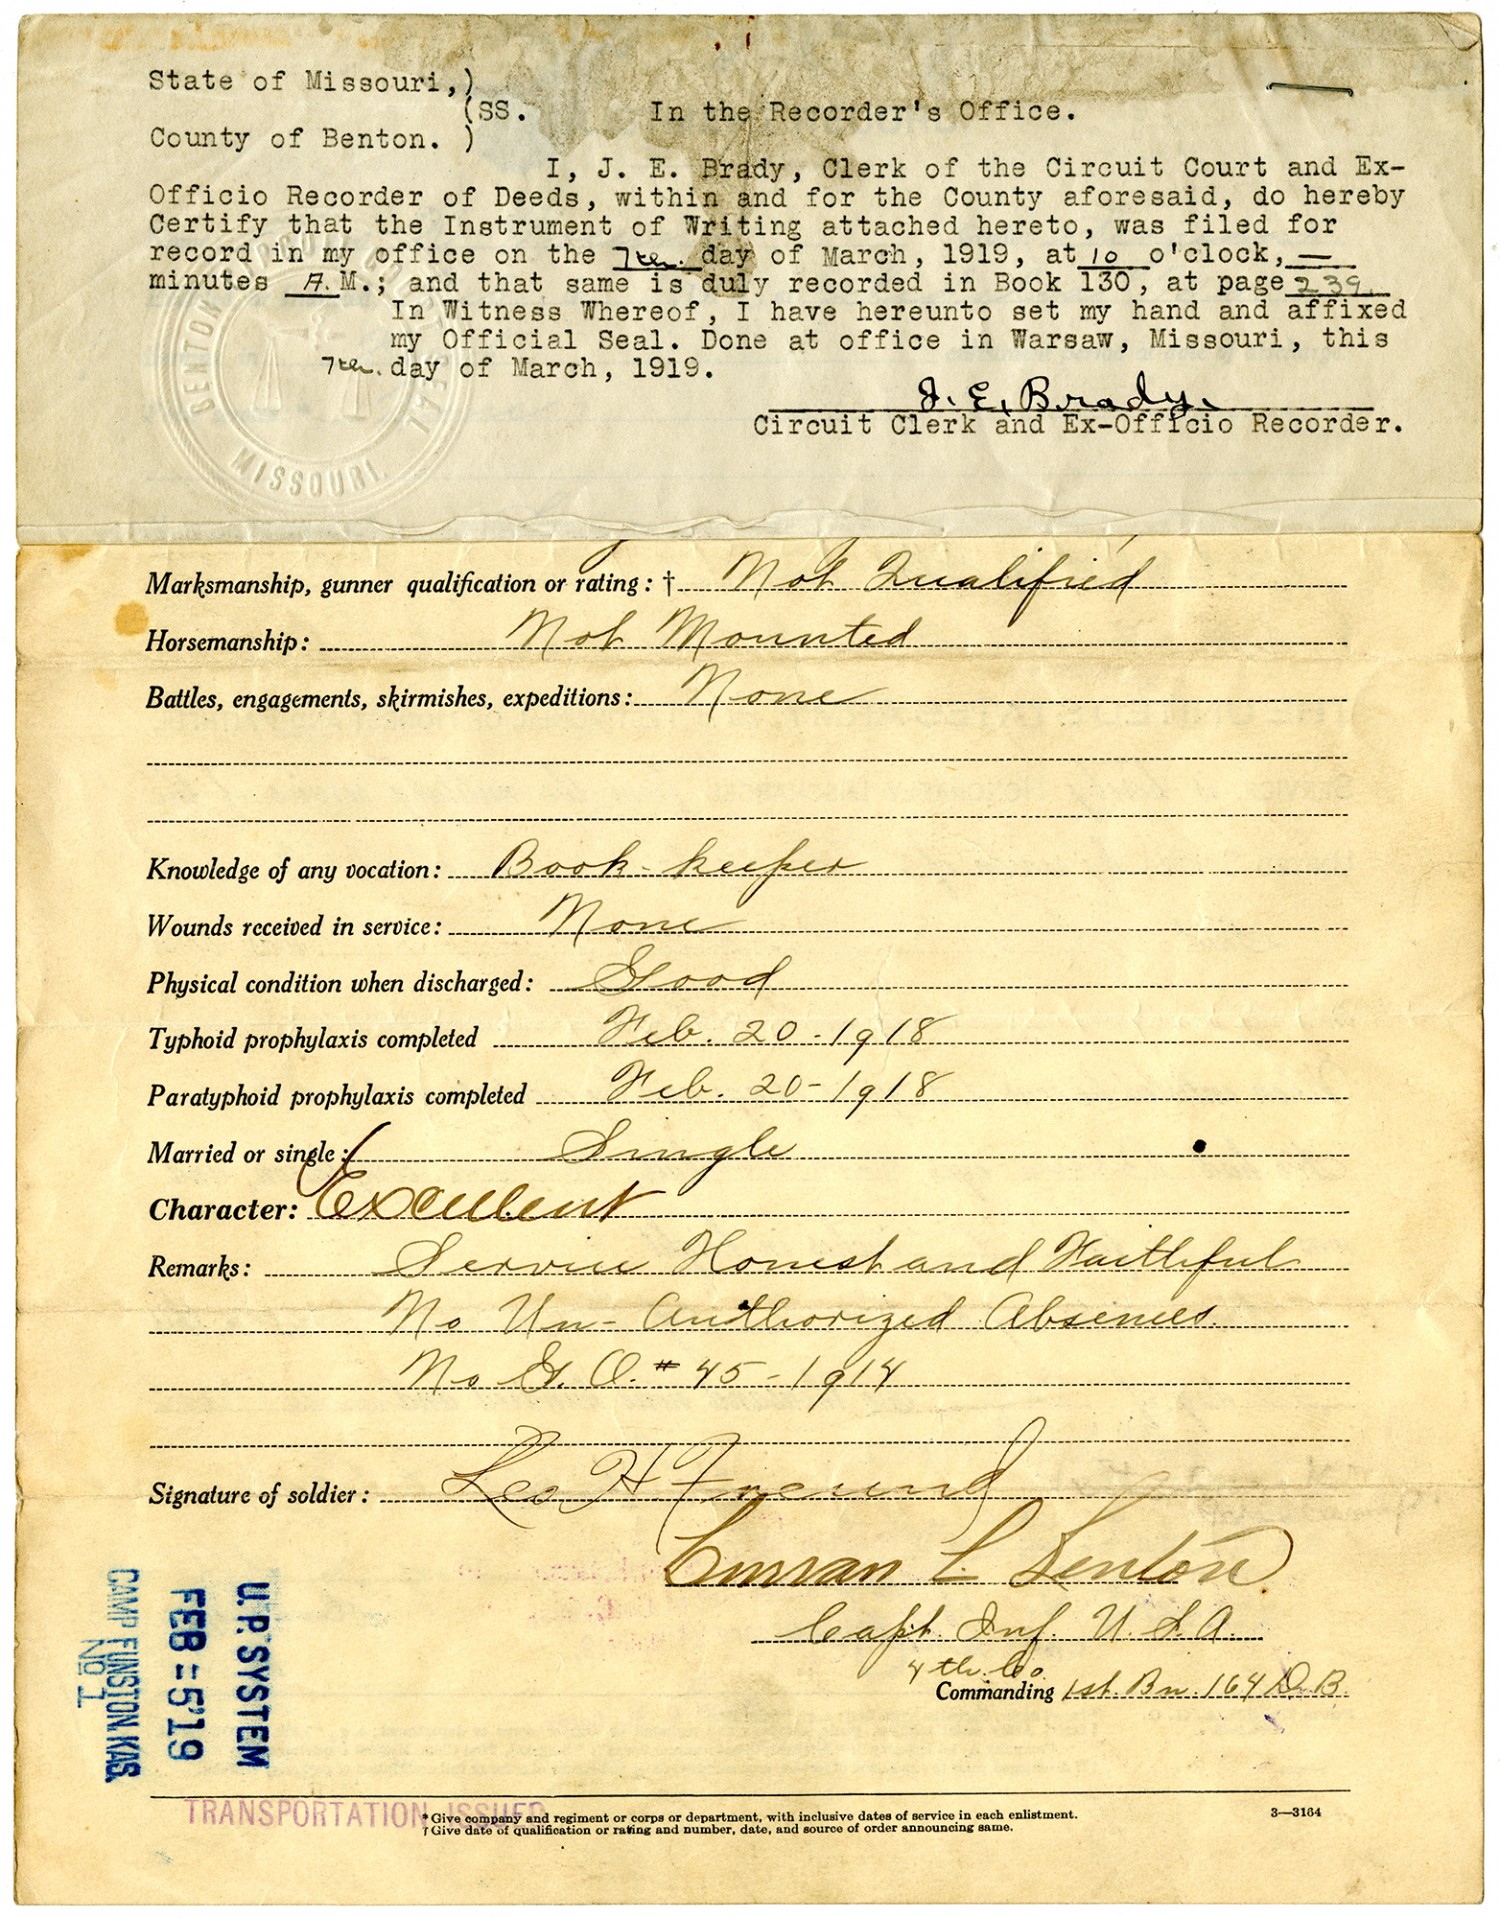 State of Missouri,)
(SS. In the Recorder's Office.
County of Benton. )
I, J. E. Brady, Clerk of the Circuit Court and Ex-
Officio Recorder of Deeds, within and for the County aforesaid, do hereby
Certify that the Instrument of Writing attached hereto, was filed for
record in my office on the 7th. day of March, 1919, at 10 o'clock, —
minutes A.M.; and that same is duly recorded in Book 130, at page 239.
In Witness Whereof, I have hereunto set my hand and affixed
my Official Seal. Done at office in Warsaw, Missouri, this
7th. day of March, 1919.
J. E. Brady.
Circuit Clerk and Ex-Officio Recorder.
BENTON
MISSOURI
Marksmanship, gunner qualification or rating: † Not Qualified
Horsemanship: Not Mounted
Battles, engagements, skirmishes, expeditions: None
Knowledge of any vocation: Book-keeper
Wounds received in service: None
Physical condition when discharged: Good
Typhoid prophylaxis completed Feb. 20-1918
Paratyphoid prophylaxis completed Feb. 20-1918
Married or single: Single
Character: Excellent
Remarks: Service Honest and Faithful
No Un-Authorized Absences.
No G.O. # 45-1914
Signature of soldier: Leo H Freund
Curran L
Capt. Inf. U.S.A.
4th. Co.
Commanding 1st. Bn. 164 D.B.
U.P. SYSTEM
FEB=5'19
CAMP FUNSTON, KAS.
No 1
TRANSPORTATION ISSUED
* Give company and regiment or corps or department, with inclusive dates of service in each enlistment.
† Give date of qualification or rating and number, date, and source of order announcing same.
3—3164